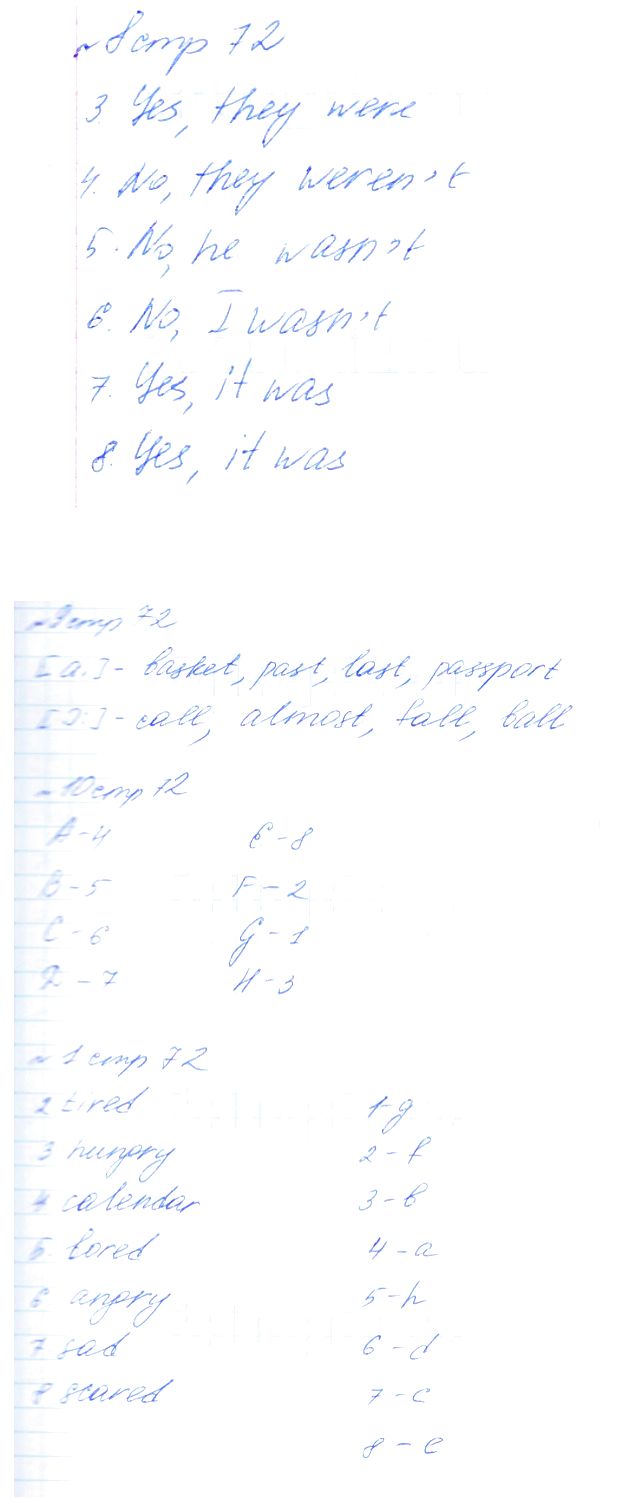 ~8 стр 72
3. Yes, they were
4. No, they weren't
5. No, he wasn't
6. No, I wasn't
7. Yes, it was
8. Yes, it was
~9 стр 72
[a:] - basket, past, last, passport
[ɔ:] - call, almost, fall, ball
~10 стр 72
A-4 E-8
B-5 F-2
C-6 G-1
D-7 H-3
~1 стр 72
2 tired 1-g
3 hungry 2-f
4 calendar 3-b
5. bored 4-a
6 angry 5-h
7 sad 6-d
8 scared 7-c
8-e